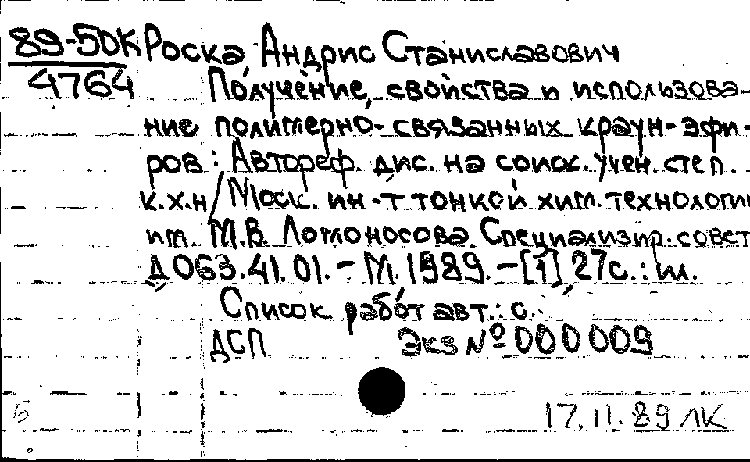 89-50К Роска, Андрис Станиславович
4764 Получение, свойства и использова-
ние полимерно-связанных краун-эфи-
ров : Автореф. дис. на соиск. учен. степ.
к.х.н / Моск. ин-т тонкой хим. технологии
им. М.В. Ломоносова. Специализир. совет
Д 063.41.01. - М. 1989. - [1], 27с. : ил.
Список работ авт.: с.
ДСП Экз № 000009
Б 17.11.89 ЛК